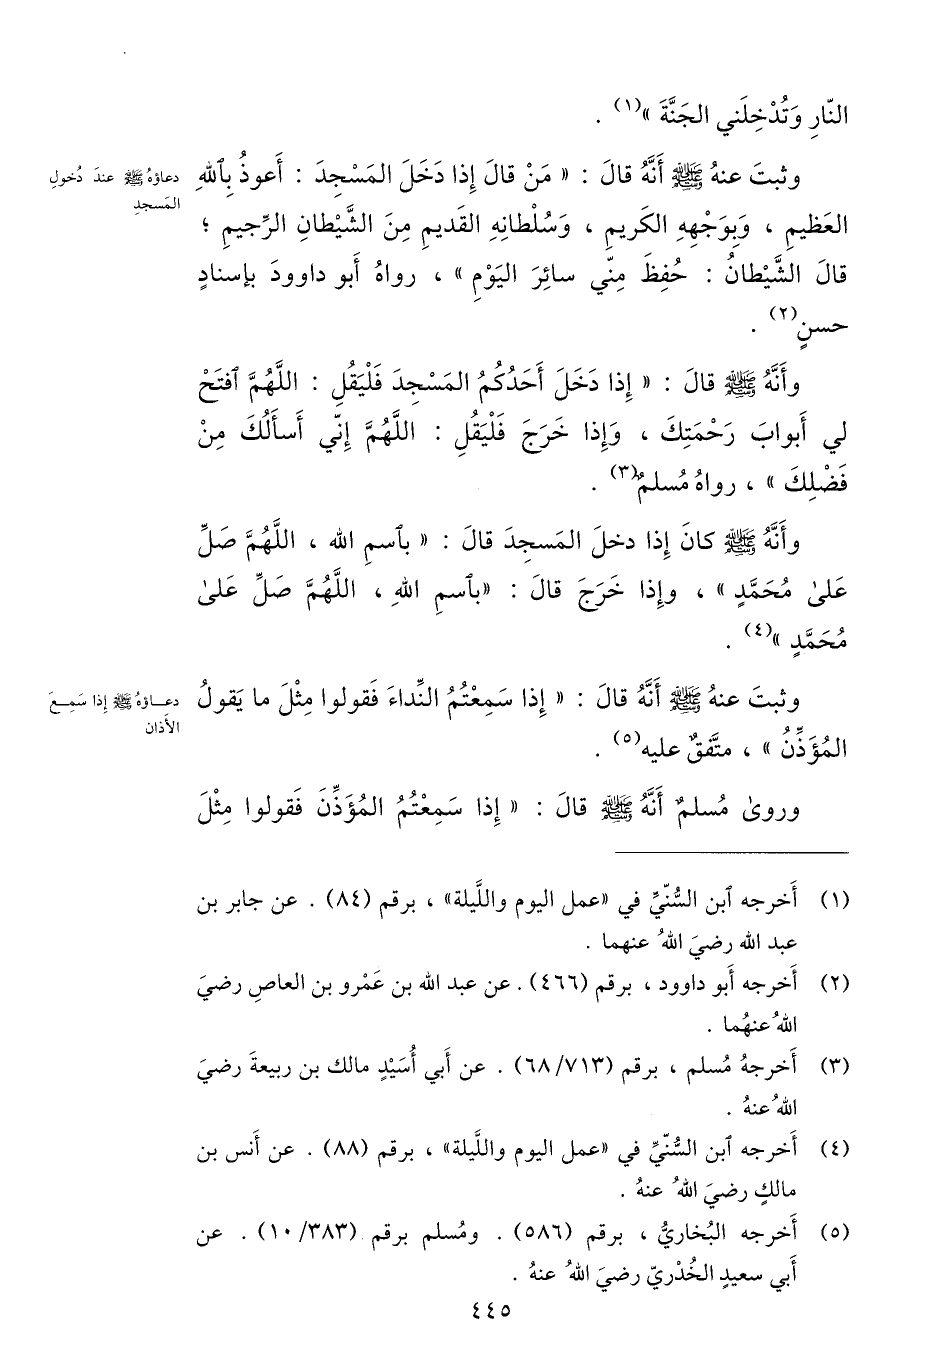 النّارِ وَتُدْخِلَني الجَنَّةَ »(١) .
وثبتَ عنهُ ﷺ أَنَّهُ قالَ : « مَنْ قالَ إِذا دَخَلَ المَسْجِدَ : أَعوذُ بِٱللهِ
دعاؤهُ ﷺ عندَ دُخولِ
المَسجدِ
العَظيمِ ، وَبِوَجْهِهِ الكَريمِ ، وَسُلْطانِهِ القَديمِ مِنَ الشَّيْطانِ الرَّجيمِ ؛
قالَ الشَّيْطانُ : حُفِظَ مِنّي سائِرَ اليَوْمِ » ، رواهُ أَبو داوودَ بإسنادٍ
حسنٍ(٢) .
وأَنَّهُ ﷺ قالَ : « إِذا دَخَلَ أَحَدُكُمُ المَسْجِدَ فَلْيَقُلِ : اللَّهُمَّ ٱفتَحْ
لي أَبوابَ رَحْمَتِكَ ، وَإِذا خَرَجَ فَلْيَقُلِ : اللَّهُمَّ إِنّي أَسأَلُكَ مِنْ
فَضْلِكَ » ، رواهُ مُسلمٌ(٣) .
وأَنَّهُ ﷺ كانَ إِذا دخلَ المَسجدَ قالَ : « بٱسمِ الله ، اللَّهُمَّ صَلِّ
عَلىٰ مُحَمَّدٍ » ، وإِذا خَرَجَ قالَ : «بٱسمِ اللهِ ، اللَّهُمَّ صَلِّ عَلىٰ
مُحَمَّدٍ »(٤) .
وثبتَ عنهُ ﷺ أَنَّهُ قالَ : « إِذا سَمِعْتُمُ النِّداءَ فَقولوا مِثْلَ ما يَقولُ
دعـاؤهُ ﷺ إِذا سَمِـعَ
الأَذان
المُؤَذِّنُ » ، متَّفقٌ عليه(٥) .
وروىٰ مُسلمٌ أَنَّهُ ﷺ قالَ : « إِذا سَمِعْتُمُ المُؤَذِّنَ فَقولوا مِثْلَ
(١) أَخرجه ٱبن السُّنّيِّ في «عمل اليوم واللَّيلة» ، برقم (٨٤) . عن جابر بن
عبد الله رضيَ اللهُ عنهما .
(٢) أَخرجه أَبو داوود ، برقم (٤٦٦) . عن عبد الله بن عَمْرو بن العاصِ رضيَ
اللهُ عنهُما .
(٣) أَخرجهُ مُسلم ، برقم (٦٨/٧١٣) . عن أَبي أُسَيْدٍ مالك بن ربيعةَ رضيَ
اللهُ عنهُ .
(٤) أَخرجه ٱبن السُّنّيِّ في «عمل اليوم واللَّيلة» ، برقم (٨٨) . عن أَنس بن
مالكٍ رضيَ اللهُ عنهُ .
(٥) أَخرجه البُخاريُّ ، برقم (٥٨٦) . ومُسلم برقم (١٠/٣٨٣) . عن
أَبي سعيدٍ الخُدْريّ رضيَ اللهُ عنهُ .
٤٤٥